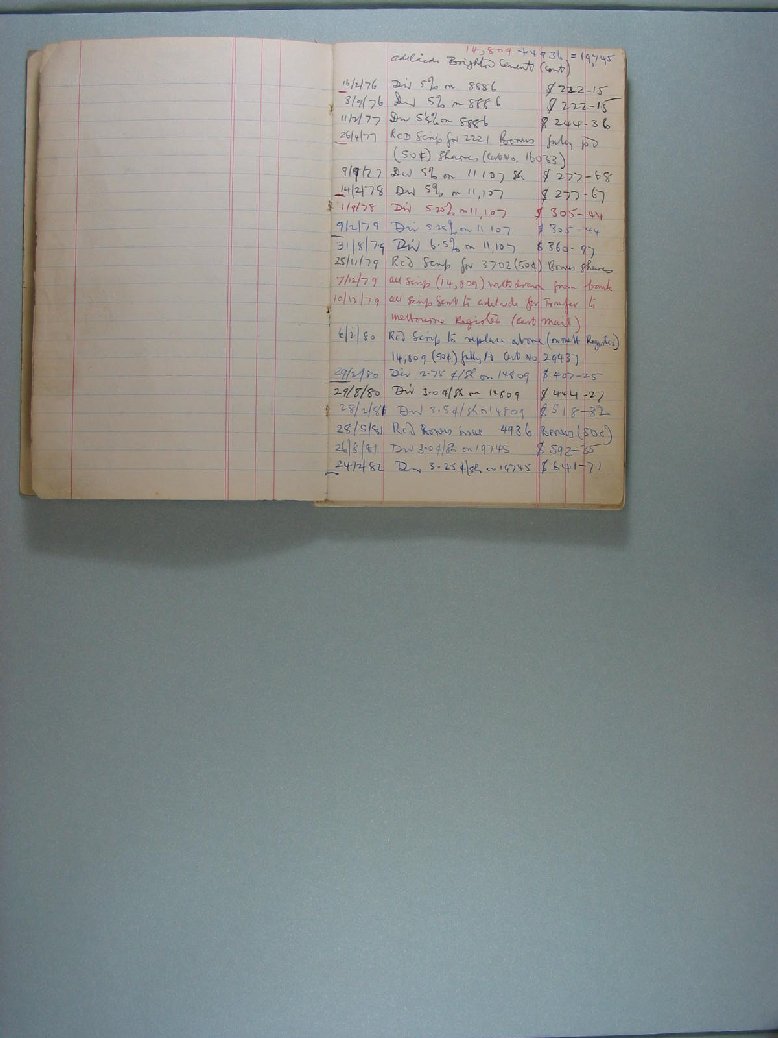 14,809 + 4936 = 19,745
Adelaide Brighton Cements (Cont)
/2/76 Div 5% on 8886 $222-15
8/9/76 Div 5% on 8886 $222-15
11/2/77 Div 5½% on 8886 $244-36
26/4/77 RCD Scrip for 2221 Bonus fully pd
(50¢) Shares (Cert No.
9/9/77 Div 5% on 11107 Sh $277-68
14/2/78 Div 5% on 11,107 $277-67
1/9/78 Div 5.50% on 11,107 $305-44
9/2/79 Div 5.50% on 11107 $305-44
31/8/79 Div 6.5% on 11,107 $360-97
28/11/79 Rcd Scrip for 3702 (50¢) Bonus Shares
7/12/79 all Scrip (14,809) withdrawn from bank
10/12/79 all Scrip Sent to Adelaide for Transfer to
Melbourne Register (Cert Mail)
6/2/80 Rcd Scrip to replace above (on Melb Register)
14,809 (50¢) fully Pd Cert No
29/2/80 Div 2.75 ¢/Sh on 14809 $407-25
29/8/80 Div 3.0¢/Sh on 14809 $444-27
28/2/81 Div 3.5¢/Sh on 14809 $518-32
28/5/81 Rcd Bonus issue 4936 Bonus (50¢)
26/8/81 Div 3.0¢/Sh on 19745 $592-35
24/2/82 Div 3.25¢/Sh on 19745 $641-71